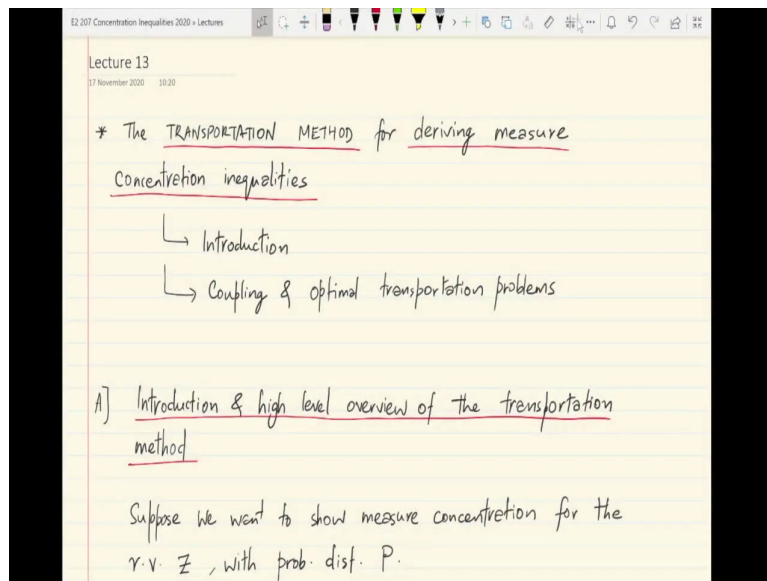 E2 207 Concentration Inequalities 2020 » Lectures
Lecture 13
17 November 2020 10:20
* The TRANSPORTATION METHOD for deriving measure
concentration inequalities
↳ Introduction
↳ Coupling & optimal transportation problems
A] Introduction & high level overview of the transportation
method
Suppose we want to show measure concentration for the
r.v. Z, with prob. dist. P.